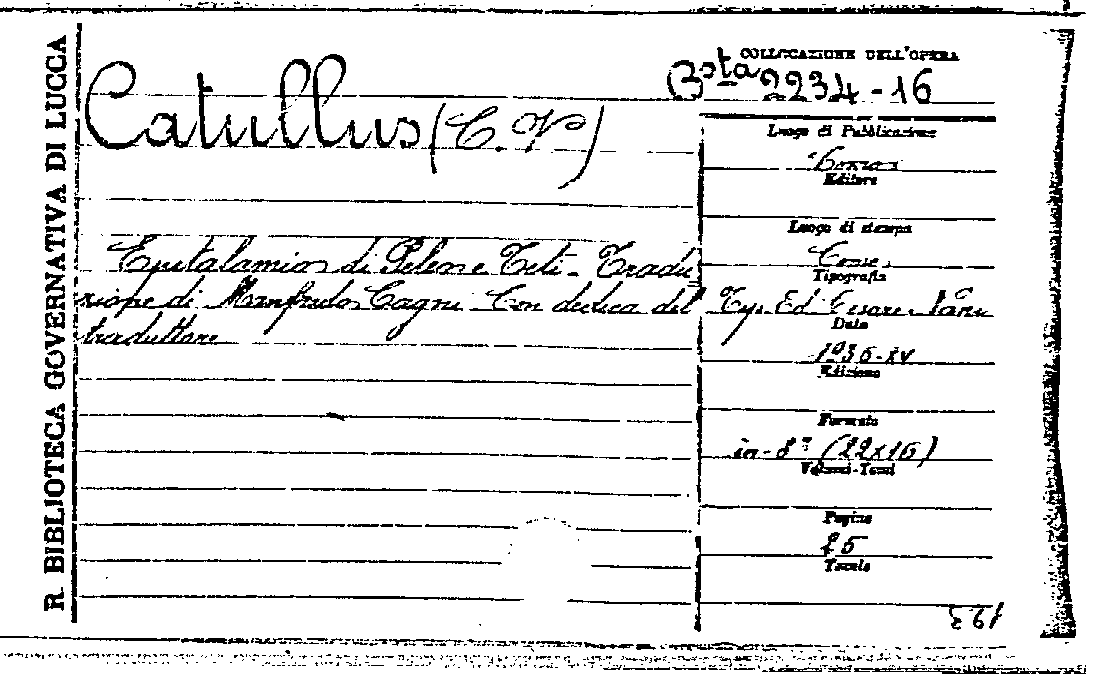 R. BIBLIOTECA GOVERNATIVA DI LUCCA
COLLOCAZIONE DELL'OPERA
Bsta 2234-16
Catullus (C. V)
Luogo di Pubblicazione
Editore
Luogo di stampa
Epitalamio di Peleo e Teti - Tradu
zione di Manfredo Cagni Con dedica del
traduttore
Tipografia
Typ. Ed. Cesare
Data
1936-XV
Edizione
Formato
in-8º (22x16)
Volumi-Tomi
Pagine
25
Tavole